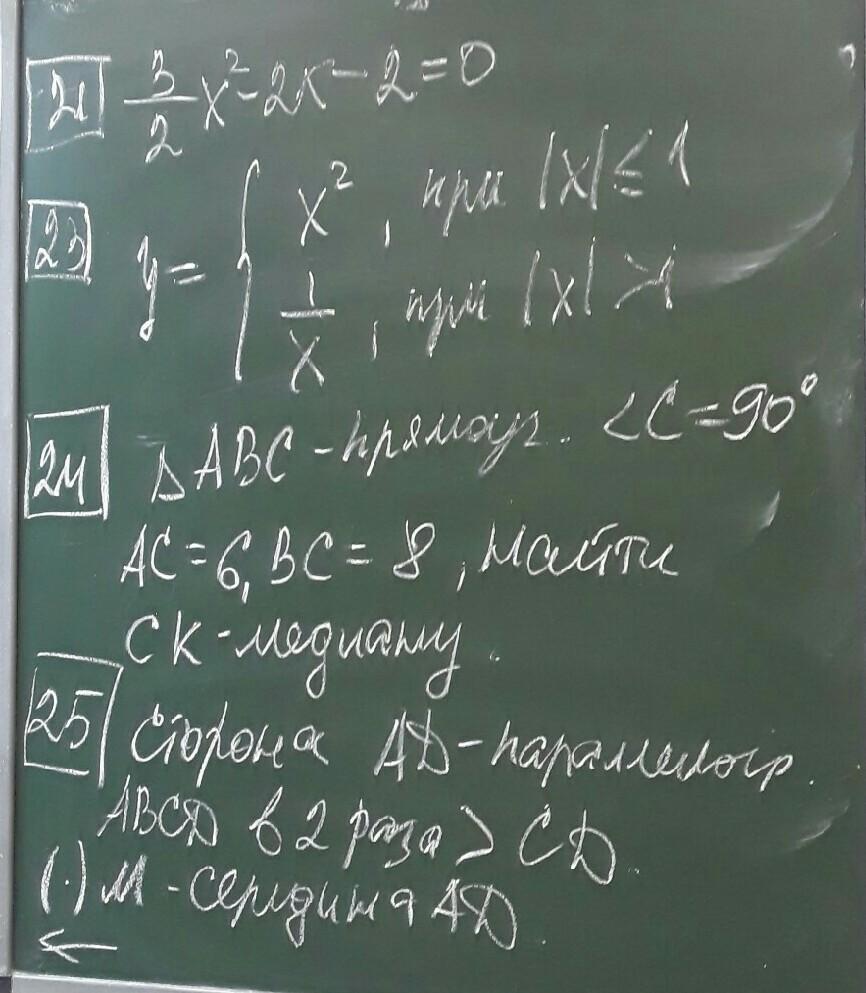 21 3/2 x² - 2x - 2 = 0
23 y = { x², при |x| ≤ 1
1/x, при |x| > 1
24 △ABC - прямоуг. <C = 90°
AC = 6, BC = 8, найти
CK - медиану.
25 Сторона AD - параллелогр.
ABCD в 2 раза > CD
(·) M - середина AD.
←